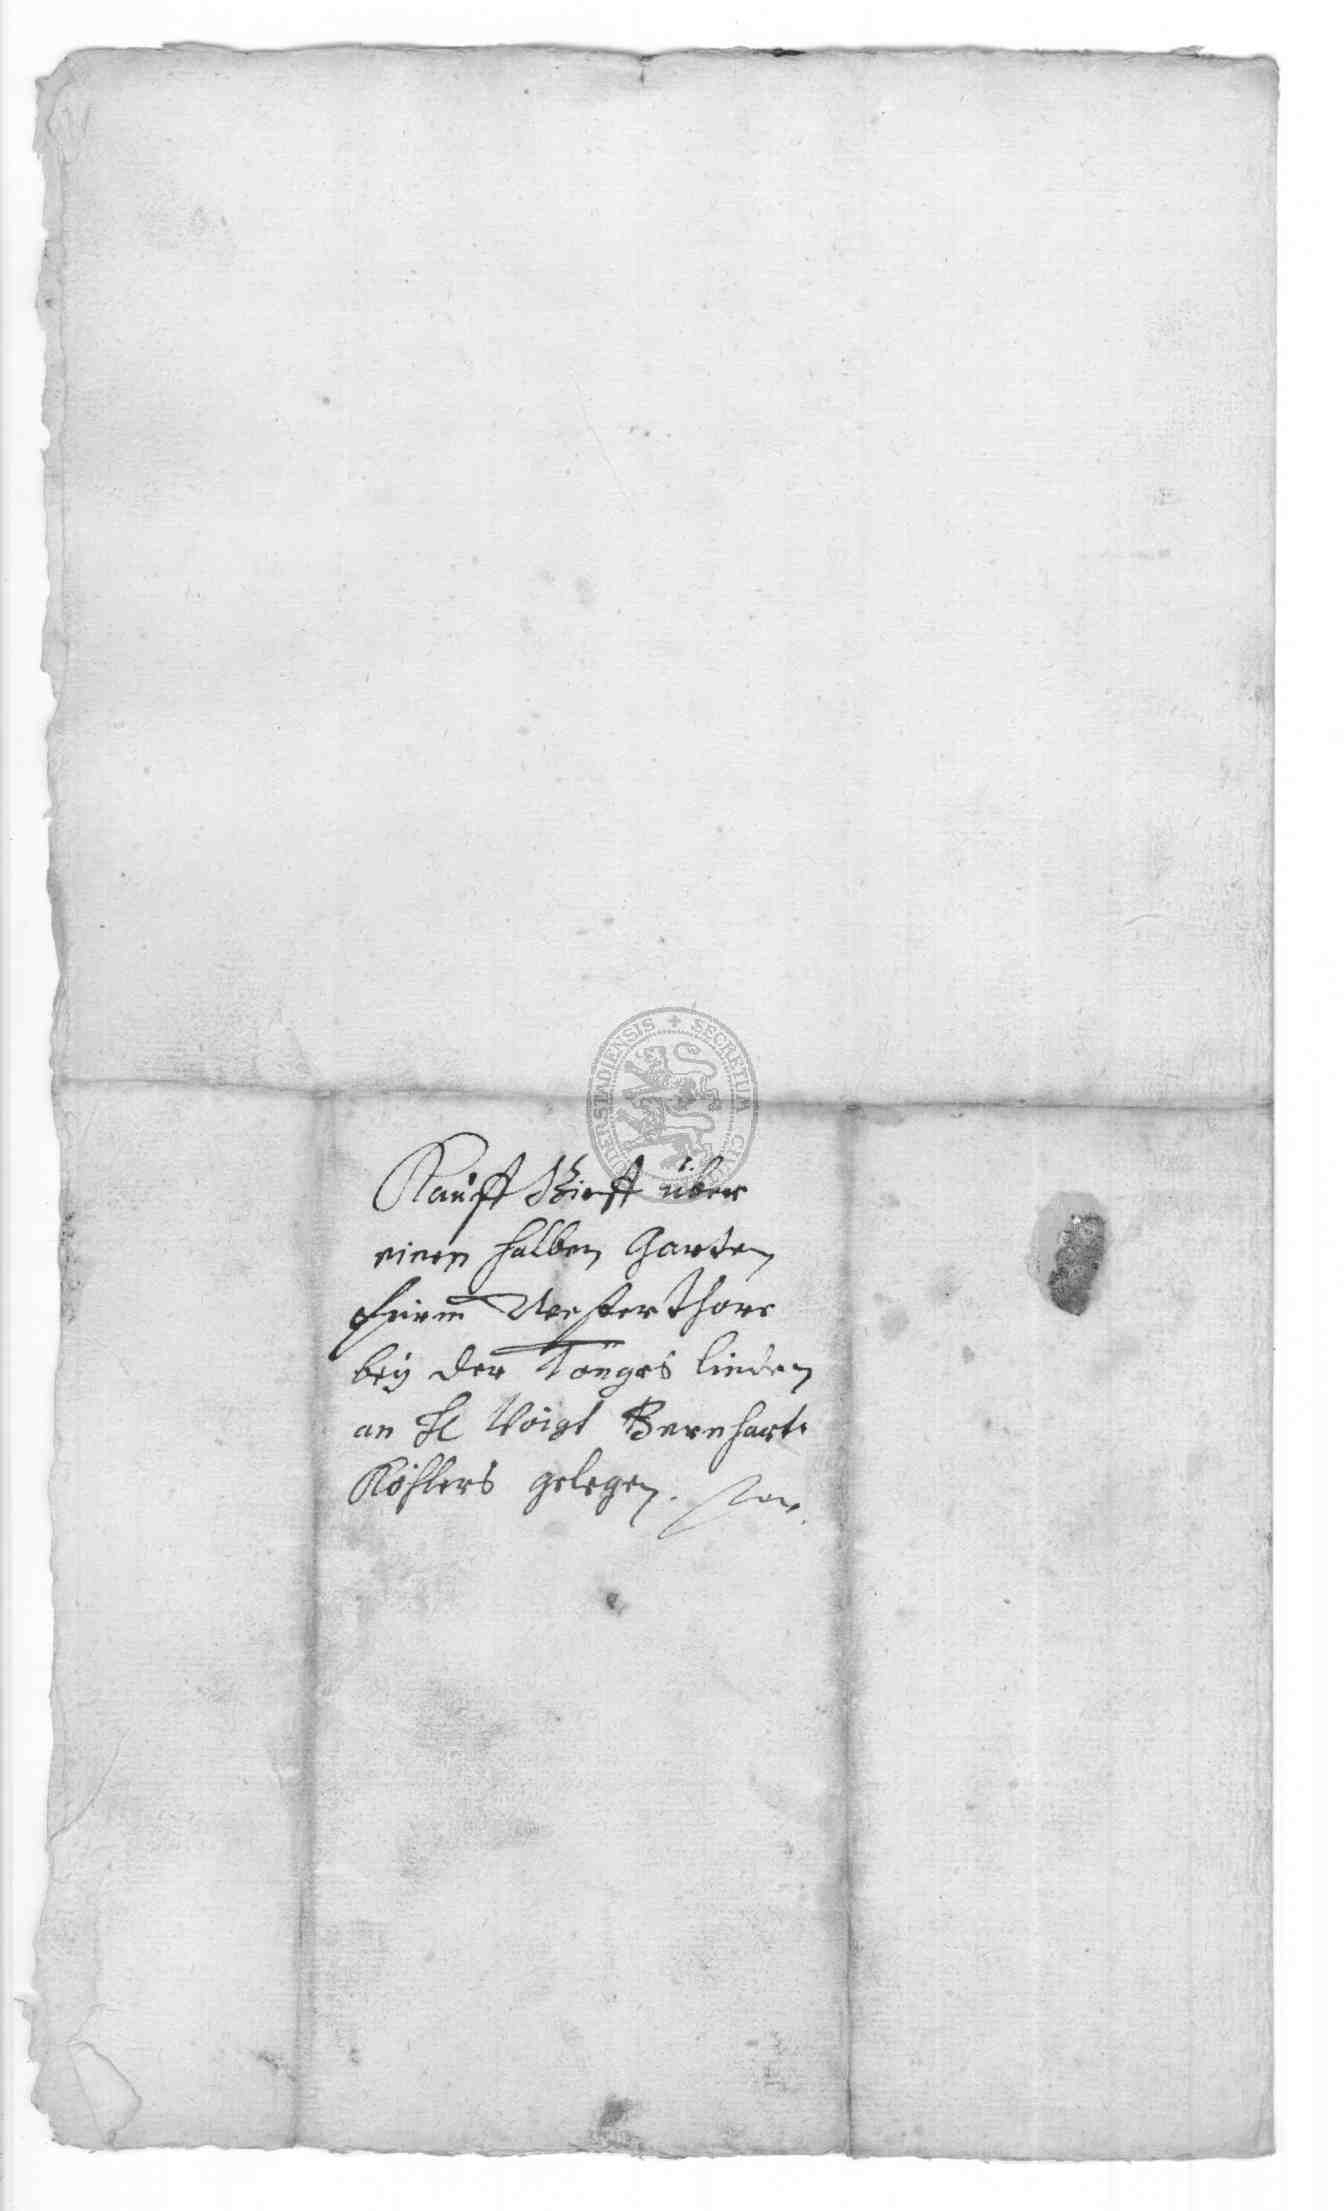 SECRETUM CIVI ODERSTADIENSIS
Kauff Brieff über
einen halben Garten
fürm Westerthore
bey der Tönges linden
an H Voigt Bernhart
Köhlers gelegen.